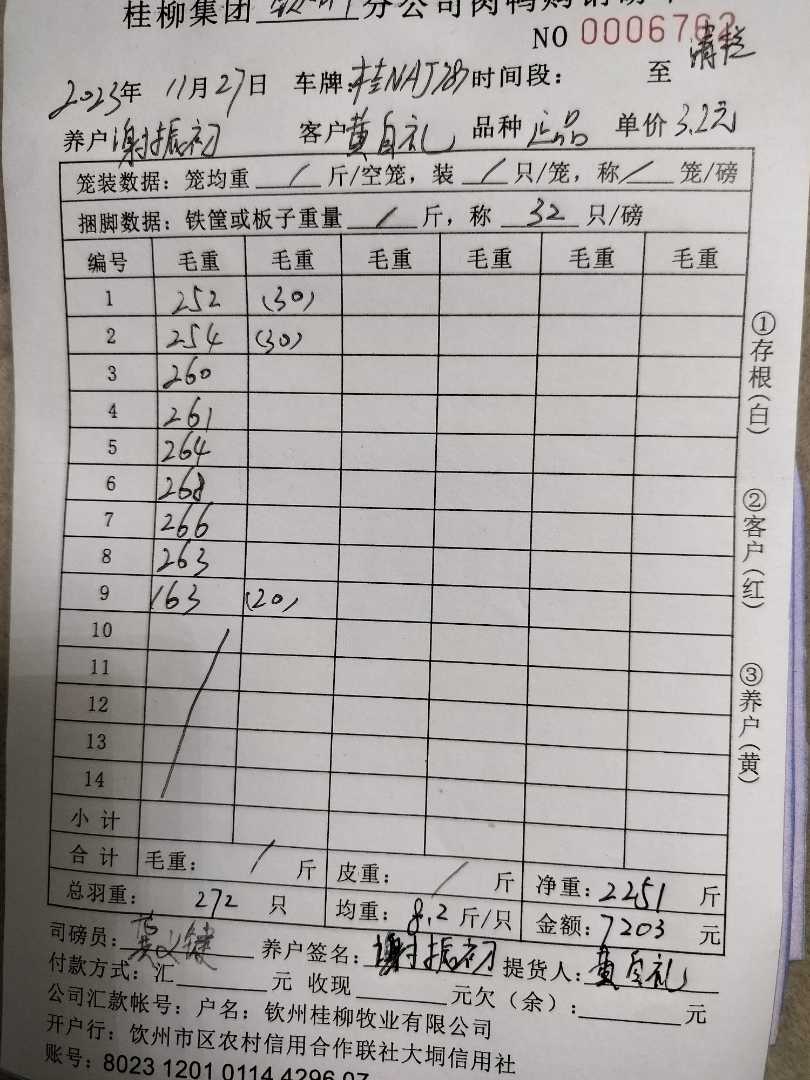 桂柳集团 分公司肉鸭购销磅单
NO 0006762
2023年 11月27日 车牌:桂NAJ787 时间段: 至
养户谢振初 客户黄自礼 品种 正品 单价3.2元
笼装数据:笼均重 / 斤/空笼,装 / 只/笼,称 / 笼/磅
捆脚数据:铁筐或板子重量 / 斤,称 32 只/磅
编号 毛重 毛重 毛重 毛重 毛重 毛重
1 252 (30)
2 254 (30)
3 260
4 261
5 264
6 268
7 266
8 263
9 163 (20)
10
11
12
13
14
小 计
合 计 毛重: / 斤 皮重: / 斤 净重:2251 斤
总羽重: 272 只 均重: 8.2 斤/只 金额:7203 元
司磅员: 养户签名: 谢振初 提货人:黄自礼
付款方式:汇 元 收现 元欠(余): 元
公司汇款帐号:户名:钦州桂柳牧业有限公司
开户行:钦州市区农村信用合作联社大垌信用社
账号:8023 1201 0114 4296 07
①存根(白)
②客户(红)
③养户(黄)